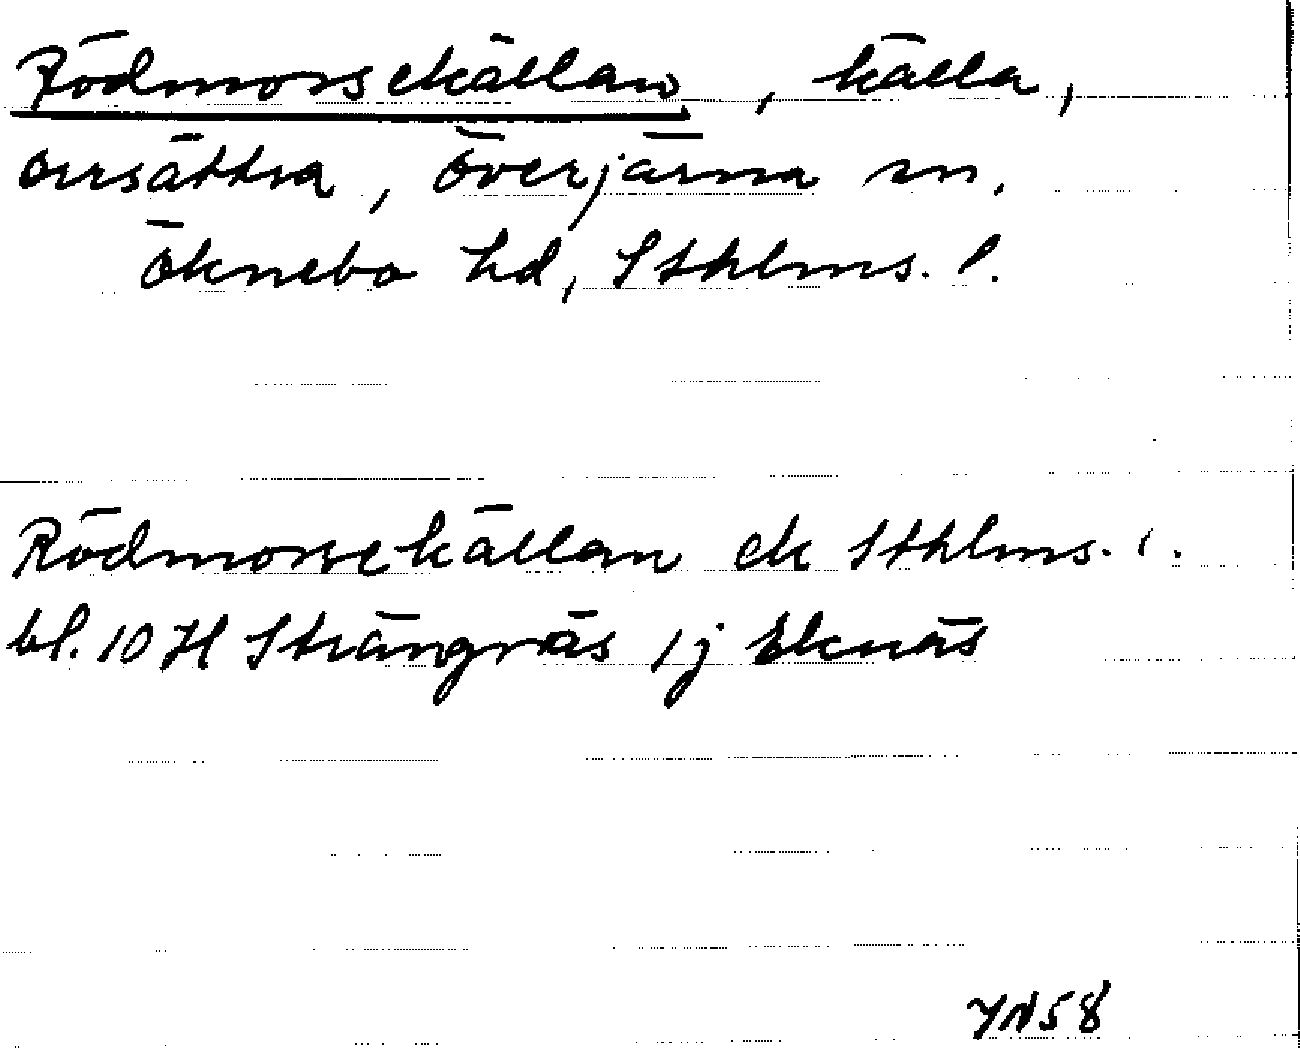 Rödmossekällan, källa,
Orrsättra, Överjärna sn,
Öknebo hd, Sthlms. l.
Rödmossekällan ek Sthlms. l.
bl. 10 H Strängnäs 1j Eknäs
YN58